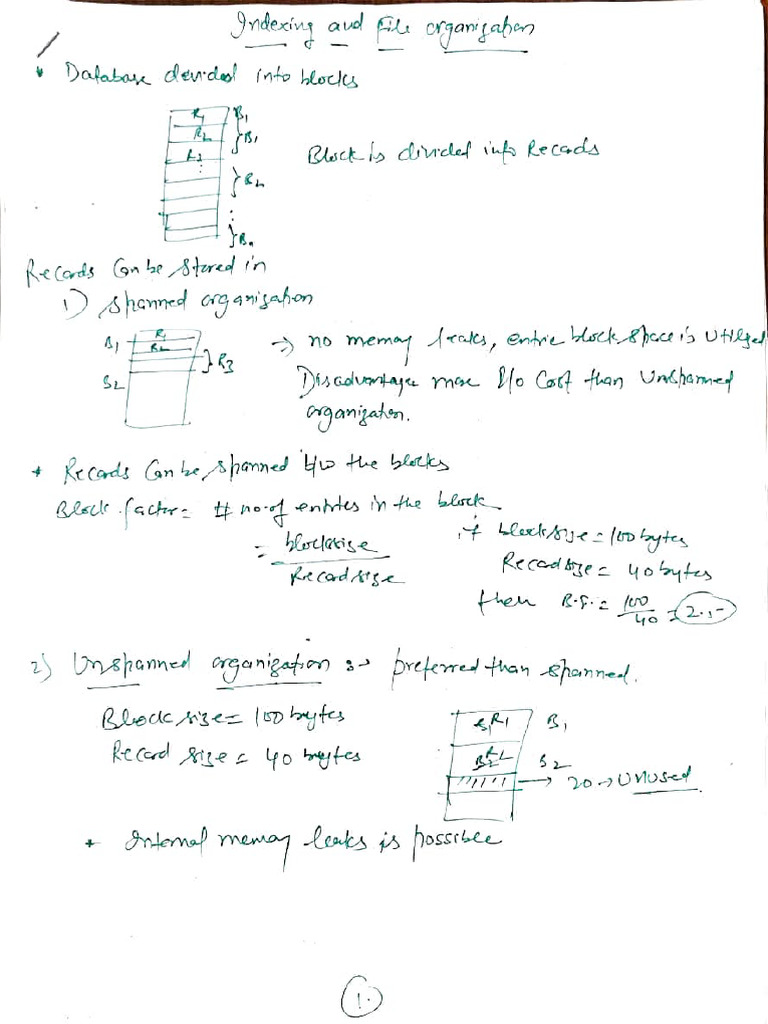 Indexing and File organization
* Database devided into blocks
R1 B1
R2 B1
R3
Block is divided into Records
B2
Bn
Records Can be stored in
1) Spanned organisation
B1 R1
R2
R3
→ no memory leaks, entire block space is utilized
Disadvantage more I/o Cost than Unspanned
organization.
* Records Can be spanned b/w the blocks
Block factor = # no. of entries in the block
= blocksize
Recordsize
if blocksize = 100 bytes
Recordsize = 40 bytes
then B.F. = 100
40 = 2.5
2) Unspanned organization :→ preferred than spanned.
Block size = 100 bytes
Record size = 40 bytes
R1 B1
R2
20 → Unused
* Internal memory leaks is possible
1.